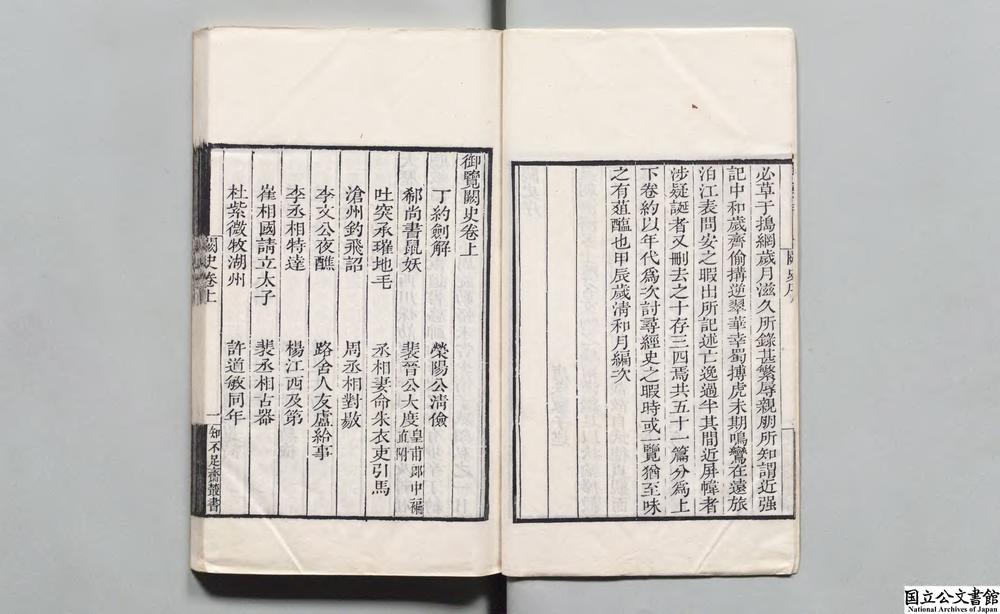 必草于搗網歲月滋久所錄甚繁辱親朋所知謂近强
記中和歲齊偷搆逆翠華幸蜀搏虎未期鳴鸞在遠旅
泊江表問安之暇出所記述亡逸過半其間近屏幃者
涉疑誕者又刪去之十存三四焉共五十一篇分為上
下卷約以年代為次討尋經史之暇時或一覽猶至味
之有葅醢也甲辰歲淸和月編次
御覽闕史卷上
丁約劍解 滎陽公清儉
郗尚書鼠妖 裴晉公大度 皇甫郎中褊直附
吐突承璀地毛 丞相妻命朱衣吏引馬
滄州釣飛詔 周丞相對敭
李文公夜醮 路舍人友盧給事
李丞相特達 楊江西及第
崔相國請立太子 裴丞相古器
杜紫微牧湖州 許道敏同年
闕史卷上
一
知不足齋叢書
国立公文書館
National Archives of Japan